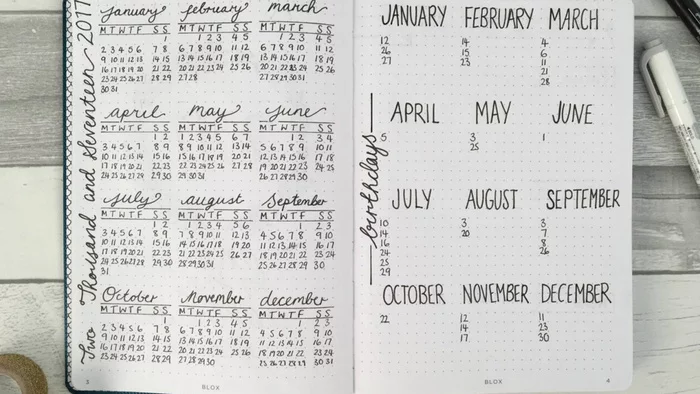 Two Thousand and Seventeen 2017
january
M T W T F S S
1
2 3 4 5 6 7 8
9 10 11 12 13 14 15
16 17 18 19 20 21 22
23 24 25 26 27 28 29
30 31
february
M T W T F S S
1 2 3 4 5
6 7 8 9 10 11 12
13 14 15 16 17 18 19
20 21 22 23 24 25 26
27 28
march
M T W T F S S
1 2 3 4 5
6 7 8 9 10 11 12
13 14 15 16 17 18 19
20 21 22 23 24 25 26
27 28 29 30 31
april
M T W T F S S
1 2
3 4 5 6 7 8 9
10 11 12 13 14 15 16
17 18 19 20 21 22 23
24 25 26 27 28 29 30
may
M T W T F S S
1 2 3 4 5 6 7
8 9 10 11 12 13 14
15 16 17 18 19 20 21
22 23 24 25 26 27 28
29 30 31
June
M T W T F S S
1 2 3 4
5 6 7 8 9 10 11
12 13 14 15 16 17 18
19 20 21 22 23 24 25
26 27 28 29 30
July
M T W T F S S
1 2
3 4 5 6 7 8 9
10 11 12 13 14 15 16
17 18 19 20 21 22 23
24 25 26 27 28 29 30
31
august
M T W T F S S
1 2 3 4 5 6
7 8 9 10 11 12 13
14 15 16 17 18 19 20
21 22 23 24 25 26 27
28 29 30 31
September
M T W T F S S
1 2 3
4 5 6 7 8 9 10
11 12 13 14 15 16 17
18 19 20 21 22 23 24
25 26 27 28 29 30
October
M T W T F S S
1
2 3 4 5 6 7 8
9 10 11 12 13 14 15
16 17 18 19 20 21 22
23 24 25 26 27 28 29
november
M T W T F S S
1 2 3 4 5
6 7 8 9 10 11 12
13 14 15 16 17 18 19
20 21 22 23 24 25 26
27 28 29 30
december
M T W T F S S
1 2 3
4 5 6 7 8 9 10
11 12 13 14 15 16 17
18 19 20 21 22 23 24
25 26 27 28 29 30 31
3
BLOX
birthdays
JANUARY
12
26
27
FEBRUARY
14
15
23
MARCH
4
6
11
21
28
APRIL
5
MAY
3
25
JUNE
1
JULY
10
14
16
24
25
29
AUGUST
3
20
SEPTEMBER
3
7
8
26
OCTOBER
22
NOVEMBER
12
14
17
DECEMBER
11
23
30
BLOX
4